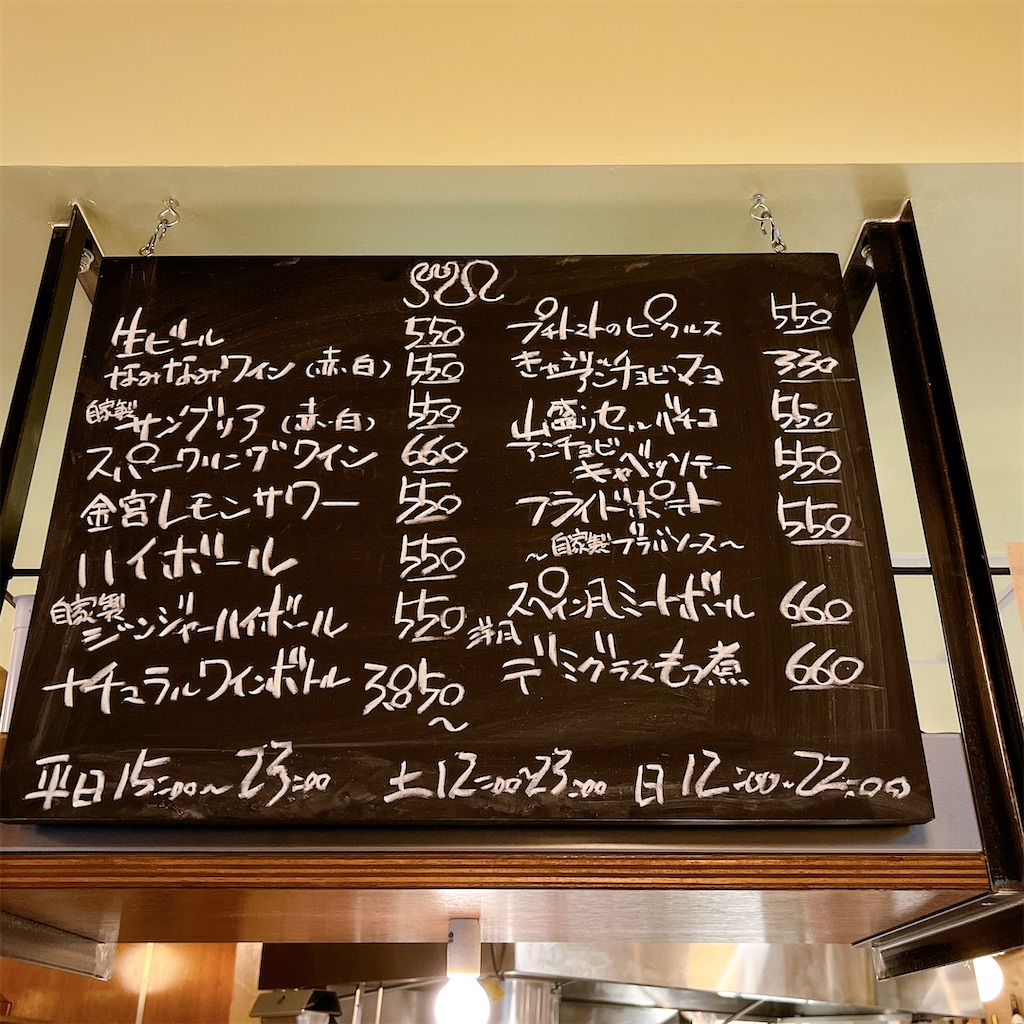 生ビール 550
なみなみワイン（赤・白） 550
自家製サングリア（赤・白） 550
スパークリングワイン 660
金宮レモンサワー 550
ハイボール 550
自家製ジンジャーハイボール 550
ナチュラルワインボトル 3850～
プチトマトのピクルス 550
キャラ゙アンチョビマヨ 330
山盛りセルバチコ 550
アンチョビキャベツソテー 550
フライドポテト 550
～自家製ブラバソース～
スペイン風ミートボール 660
洋風デミグラスもつ煮 660
平日 15:00～23:00 土 12:00～23:00 日 12:00～22:00